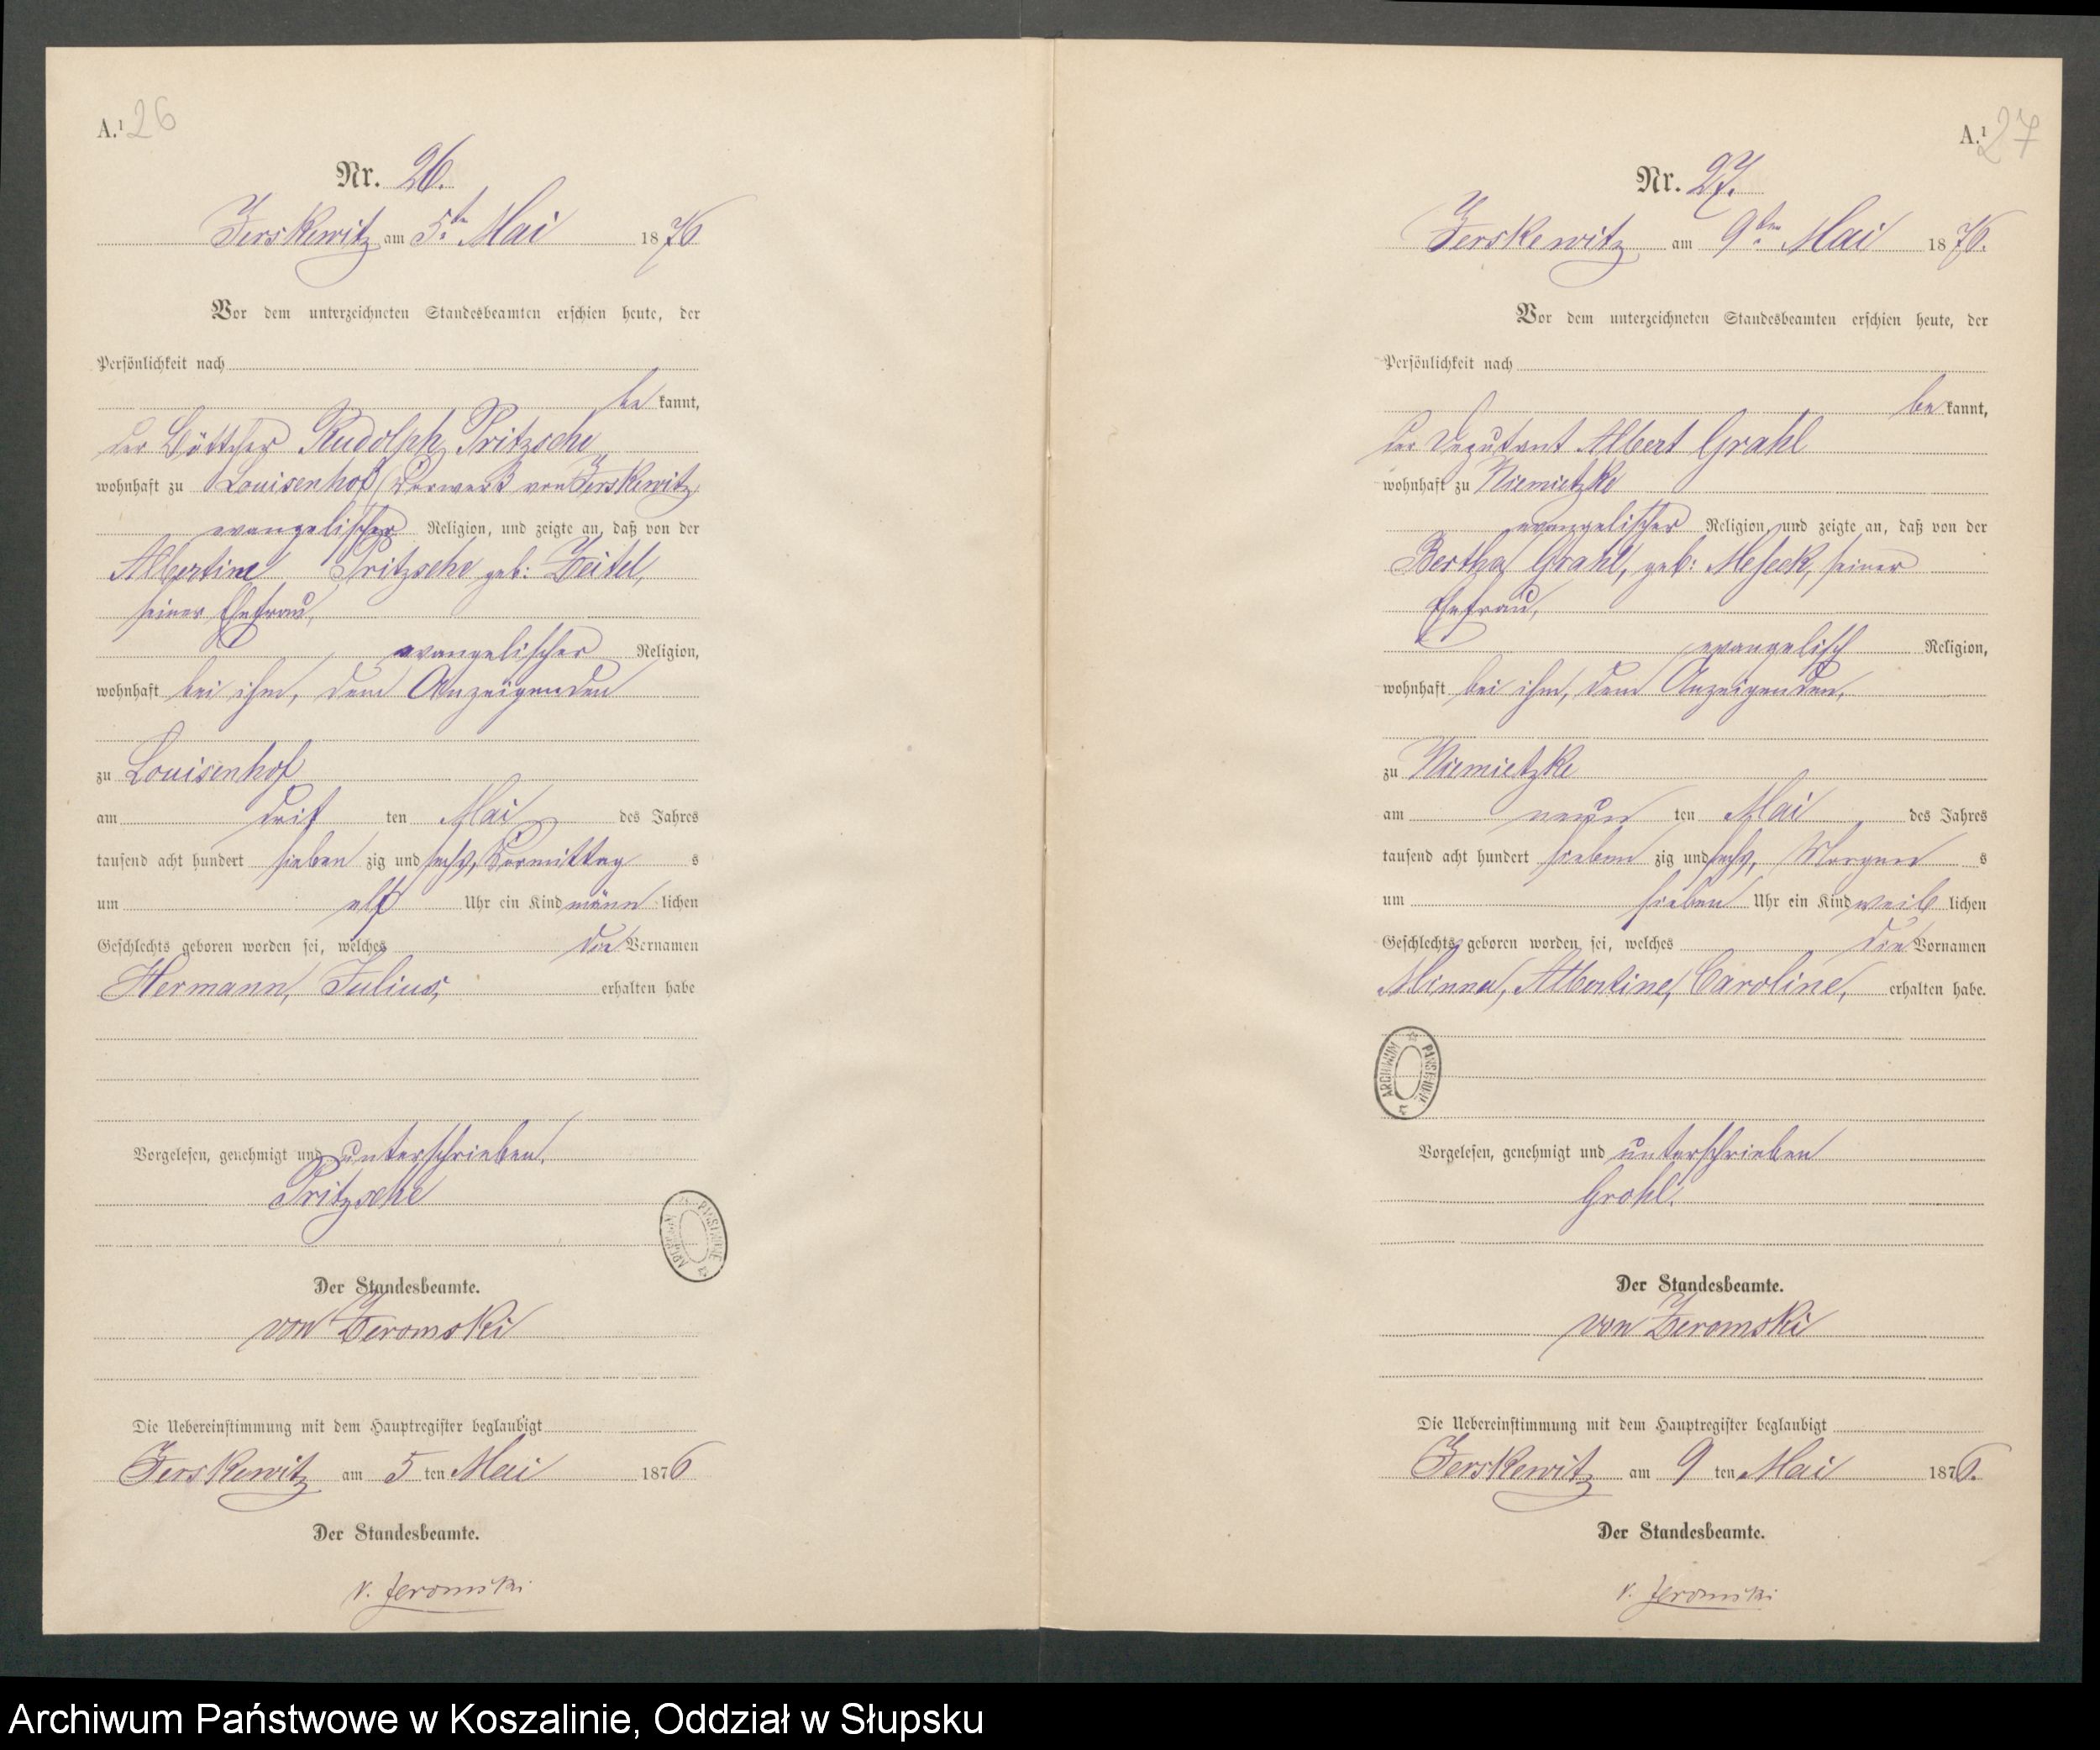 A.¹ 26
Nr. 26.
Jerskewitz am 5.ten Mai 1876
Vor dem unterzeichneten Standesbeamten erschien heute, der
Persönlichkeit nach
be kannt,
der Böttcher Rudolph Pritzsche
wohnhaft zu Louisenhof (Vorwerk von Jerskewitz,
evangelischer Religion, und zeigte an, daß von der
Albertine Pritzsche geb: Zeitel,
seiner Ehefrau,
evangelischer Religion,
wohnhaft bei ihm, dem Anzeigenden
zu Louisenhof
am drit ten Mai des Jahres
tausend acht hundert sieben zig und sechs, Vormittag s
um elf Uhr ein Kind männ lichen
Geschlechts geboren worden sei, welches die Vornamen
Hermann, Julius, erhalten habe
Vorgelesen, genehmigt und unterschrieben.
Pritzsche
Der Standesbeamte.
von Zeromski
Die Uebereinstimmung mit dem Hauptregister beglaubigt
Jerskewitz am 5 ten Mai 1876
Der Standesbeamte.
v. Zeromski
ARCHIWUM PAŃSTWOWE
A.¹ 27
Nr. 27.
Jerskewitz am 9.ten Mai 1876.
Vor dem unterzeichneten Standesbeamten erschien heute, der
Persönlichkeit nach
be kannt,
der Deputant Albert Grahl
wohnhaft zu Niemietzke
evangelischer Religion, und zeigte an, daß von der
Bertha Grahl, geb: Meseck, seiner
Ehefrau,
evangelisch Religion,
wohnhaft bei ihm, dem Anzeigenden,
zu Niemietzke
am neun ten Mai des Jahres
tausend acht hundert sieben zig und sechs, Morgen s
um sieben Uhr ein Kind weib lichen
Geschlechts geboren worden sei, welches die Vornamen
Minna, Albertine, Caroline, erhalten habe.
ARCHIWUM PAŃSTWOWE
Vorgelesen, genehmigt und unterschrieben
Grahl.
Der Standesbeamte.
von Zeromski
Die Uebereinstimmung mit dem Hauptregister beglaubigt
Jerskewitz am 9 ten Mai 1876.
Der Standesbeamte.
v. Zeromski
Archiwum Państwowe w Koszalinie, Oddział w Słupsku